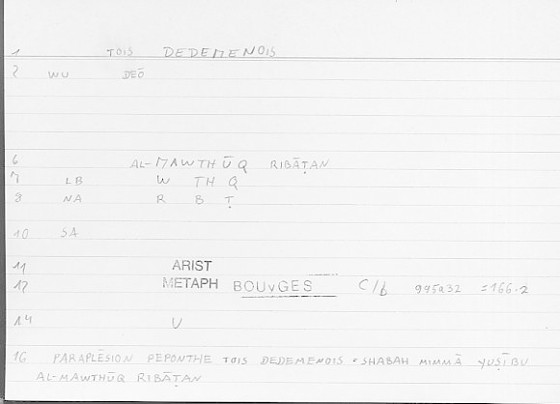 1 TOIS DEDEMENOIS
2 WU DEŌ
6 AL-MAWTHŪQ RIBĀṬAN
7 LB W TH Q
8 NA R B Ṭ
10 SA
11 ARIST
12 METAPH BOUYGES C/b 995a32 =166.2
14 V
16 PARAPLĒSION PEPONTHE TOIS DEDEMENOIS • SHABAH MIMMĀ YUṢĪBU
AL-MAWTHŪQ RIBĀṬAN